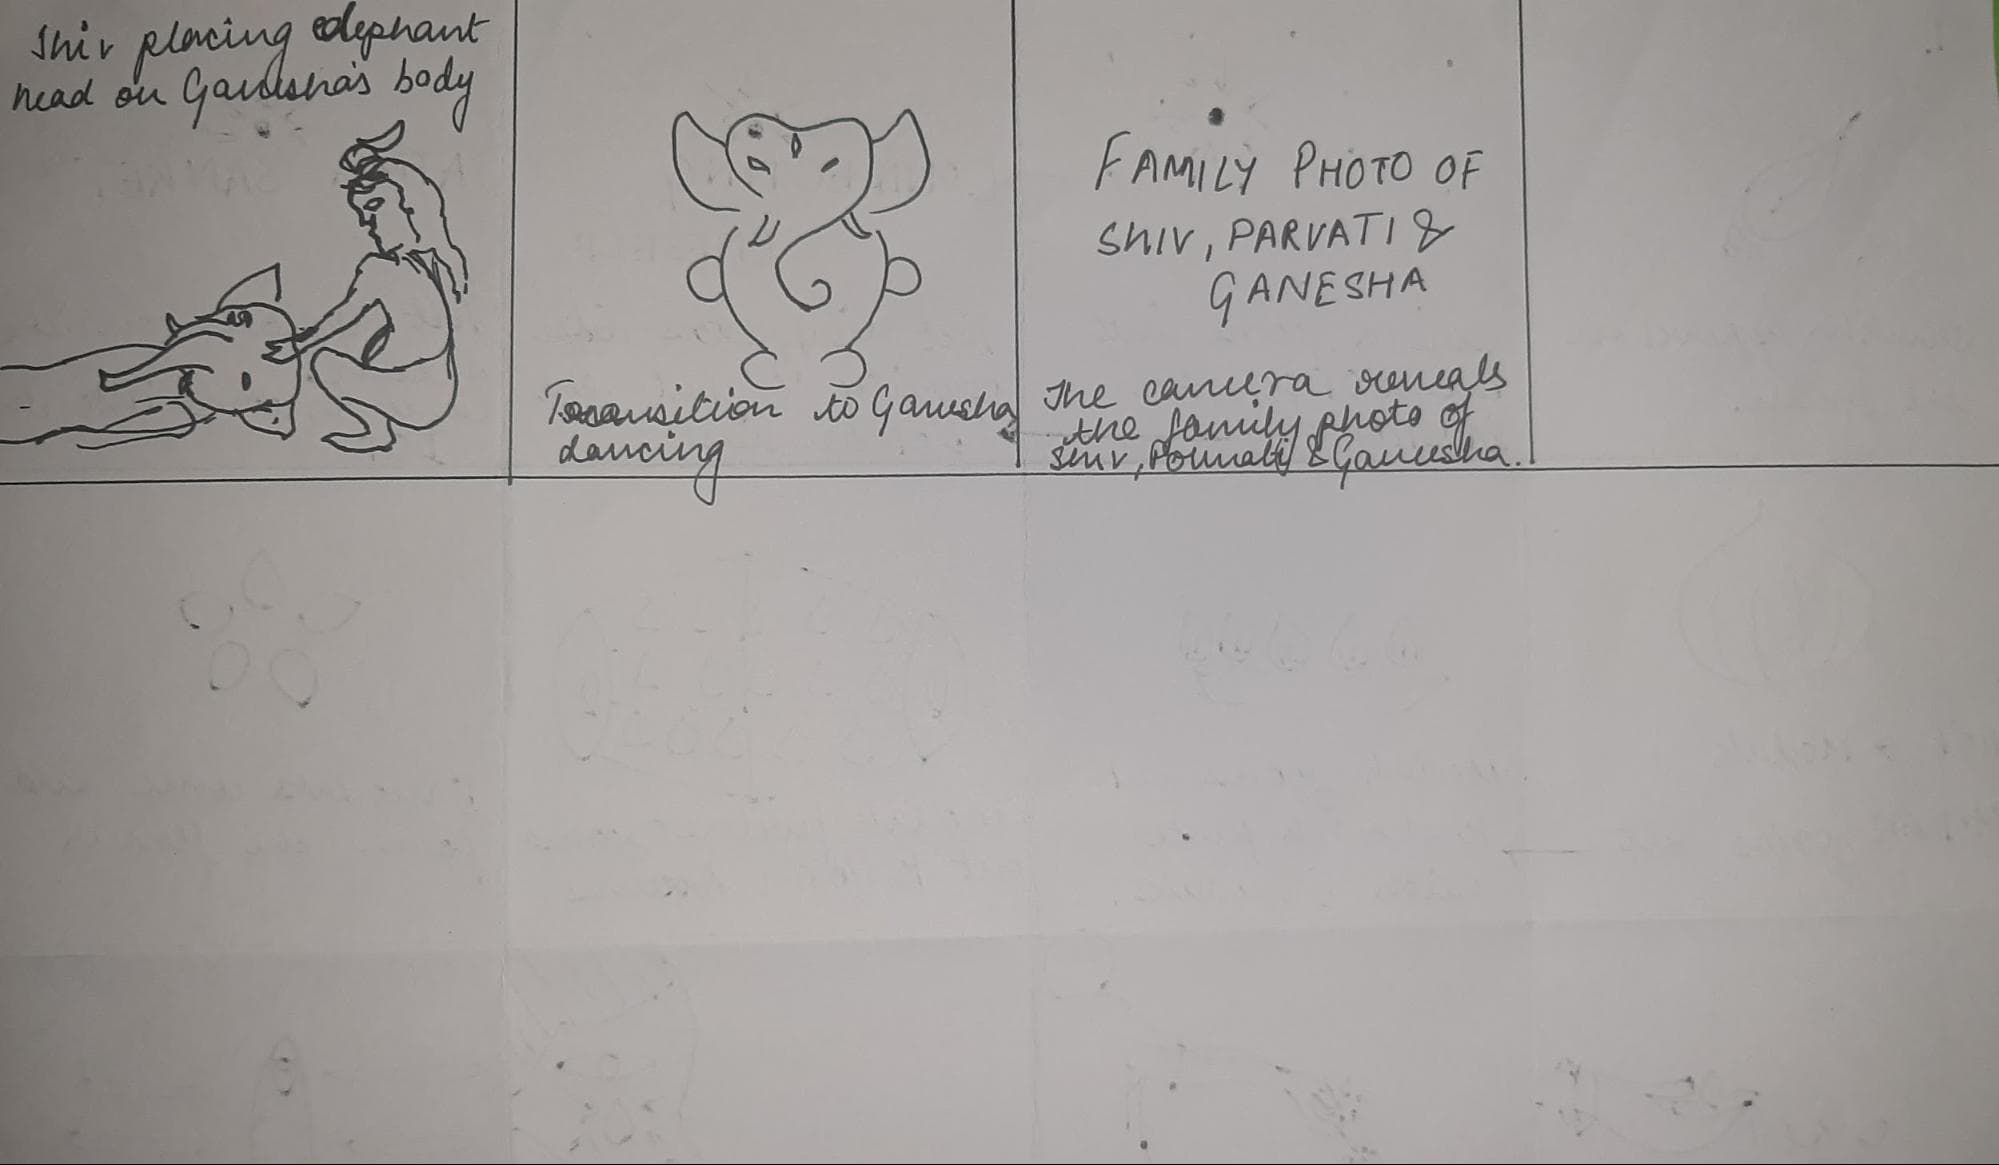 Shiv placing elephant
head on Ganesha's body
Transition to Ganesha
dancing
FAMILY PHOTO OF
SHIV, PARVATI &
GANESHA
The camera reveals
the family photo of
Shiv, Parvati & Ganesha.